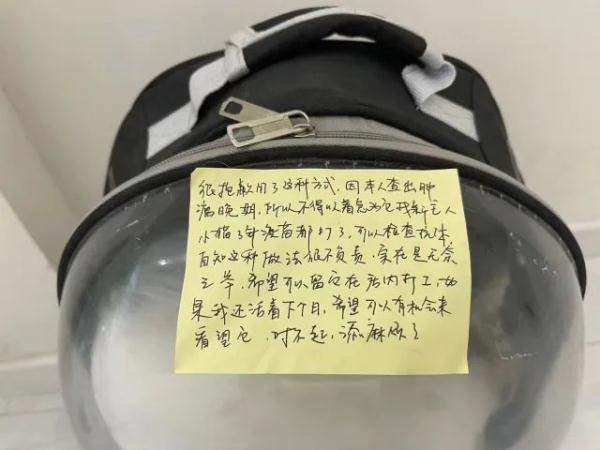 很抱歉用了这种方式,因本人查出肿
瘤晚期,所以不得以着急为它找新主人
小猫3针疫苗都打了,可以检查抗体
自知这种做法很不负责,实在是无奈
之举,希望可以留它在店内打工,如
果我还活着下个月,希望可以有机会来
看望它,对不起,添麻烦了